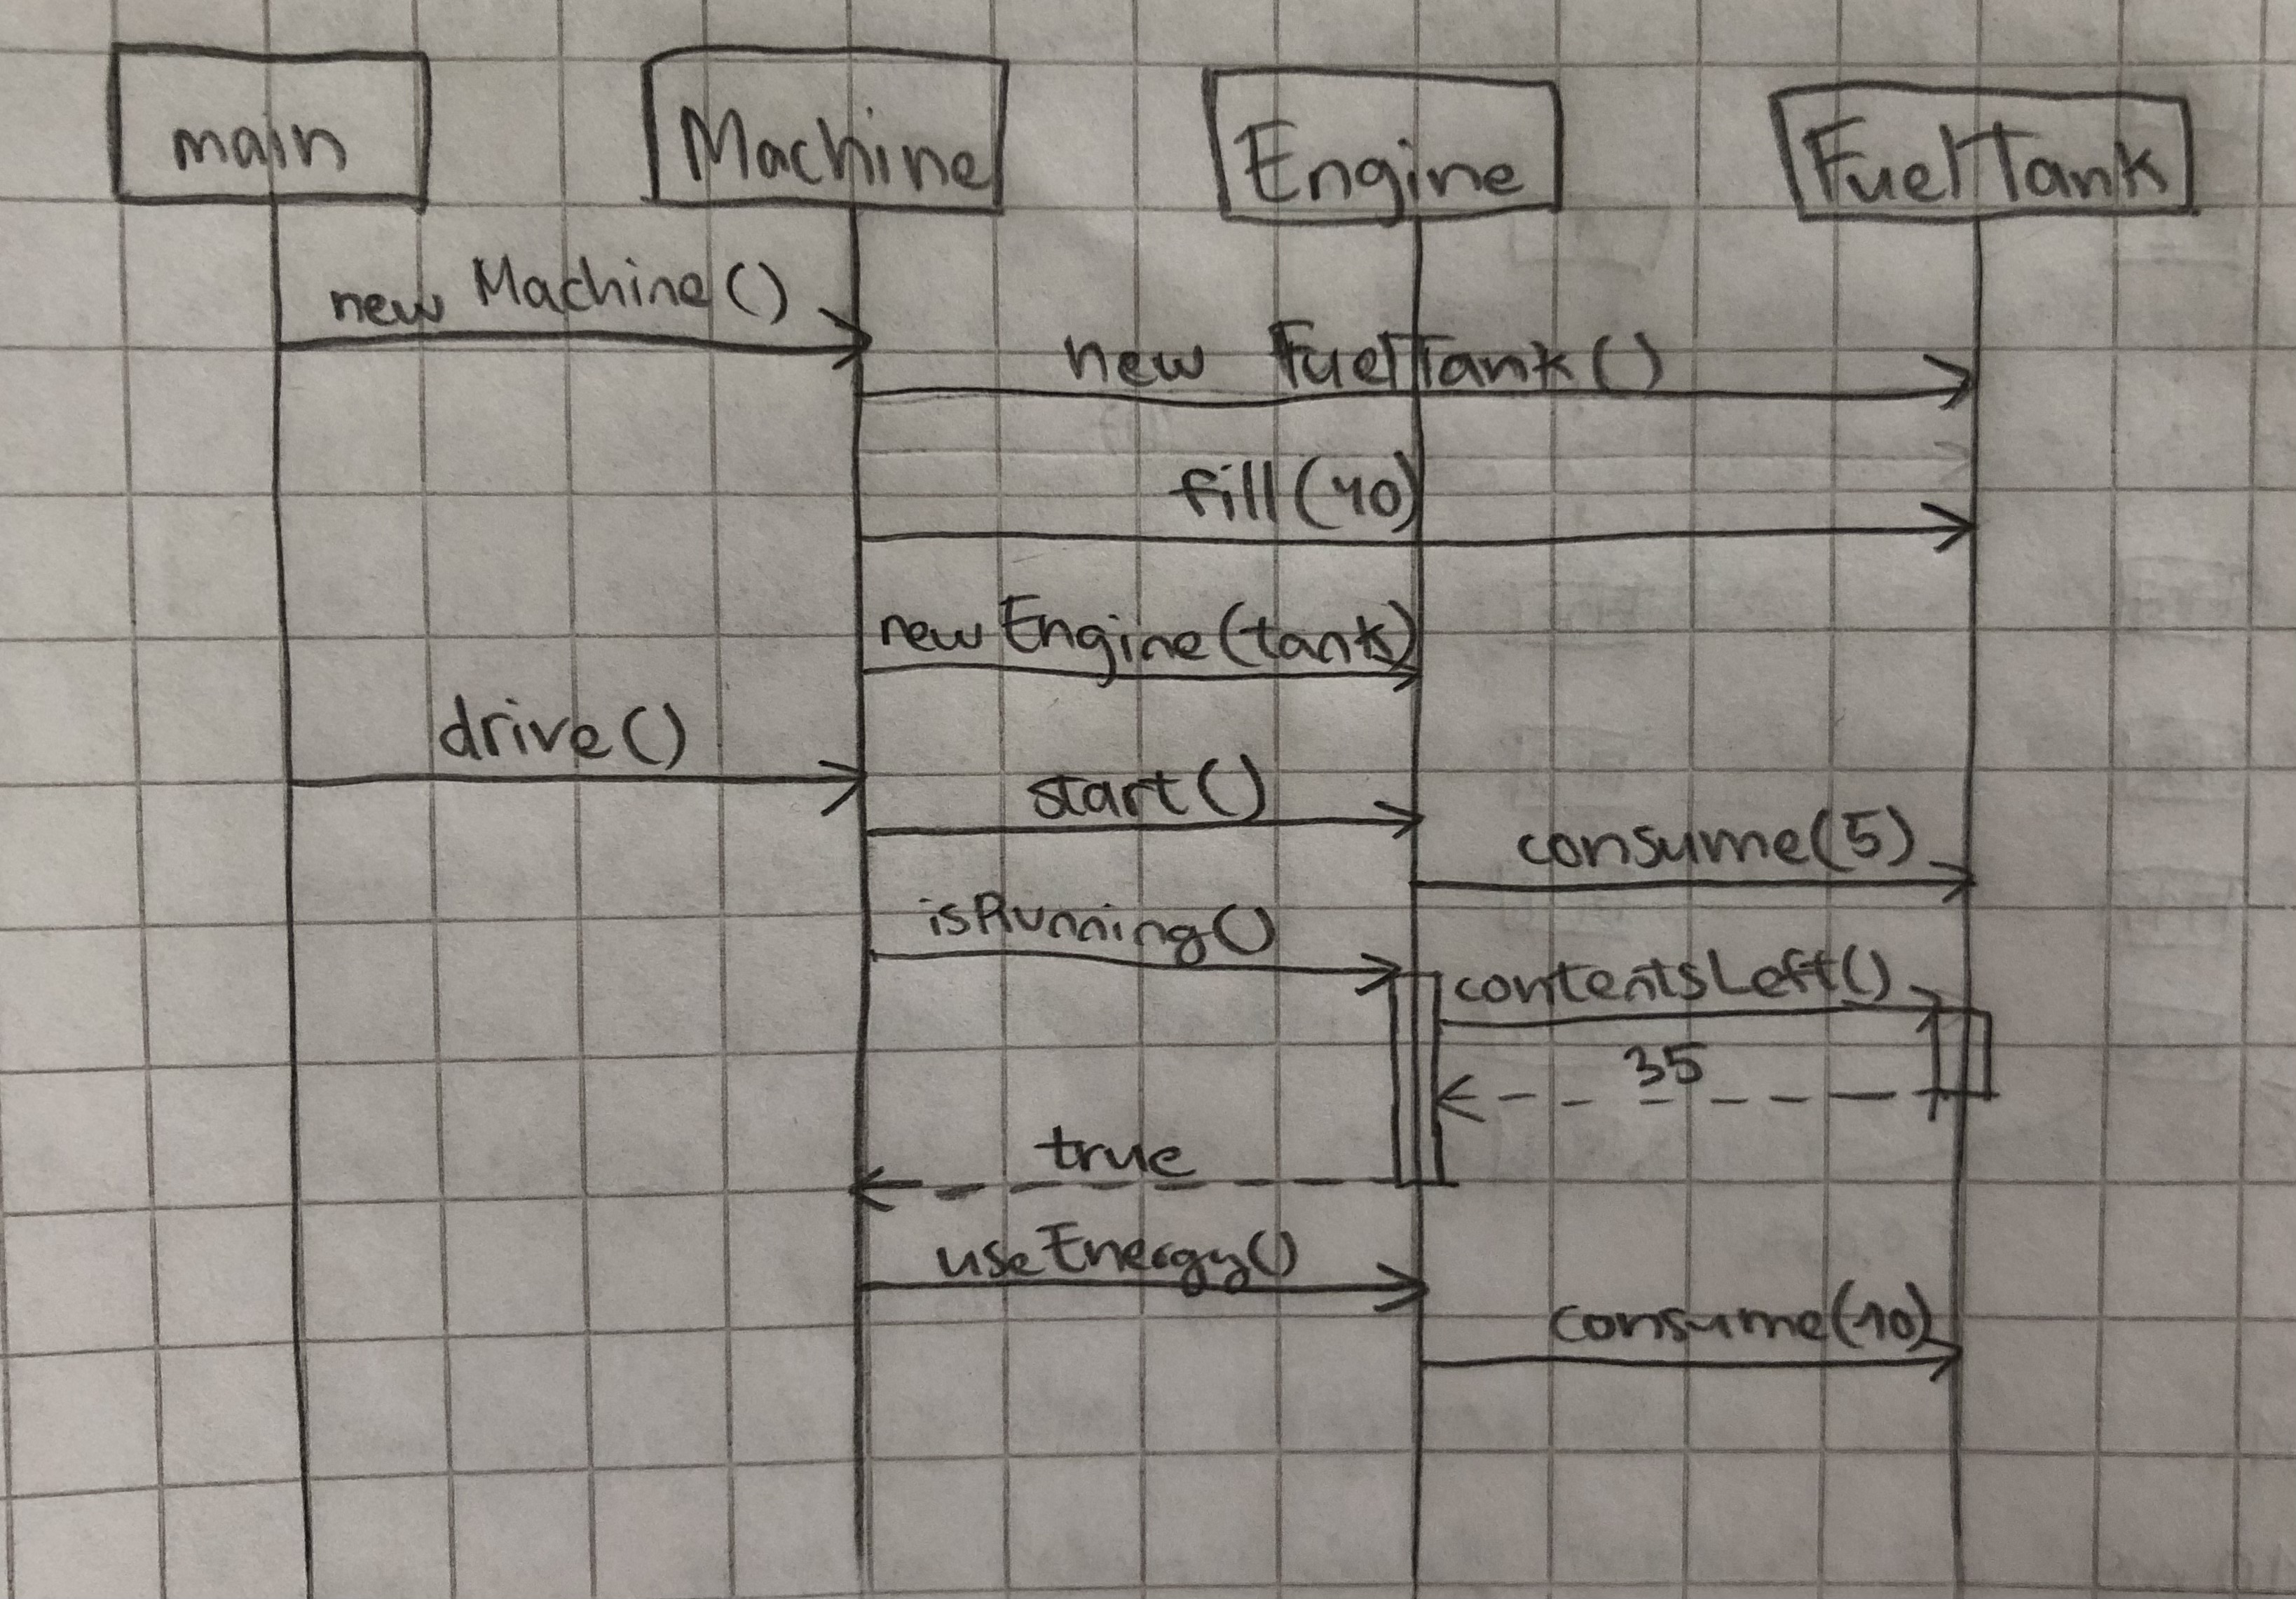 main
Machine
Engine
FuelTank
new Machine()
new FuelTank()
fill(40)
newEngine(tank)
drive()
start()
consume(5)
isRunning()
contentsLeft()
35
true
useEnergy()
consume(10)